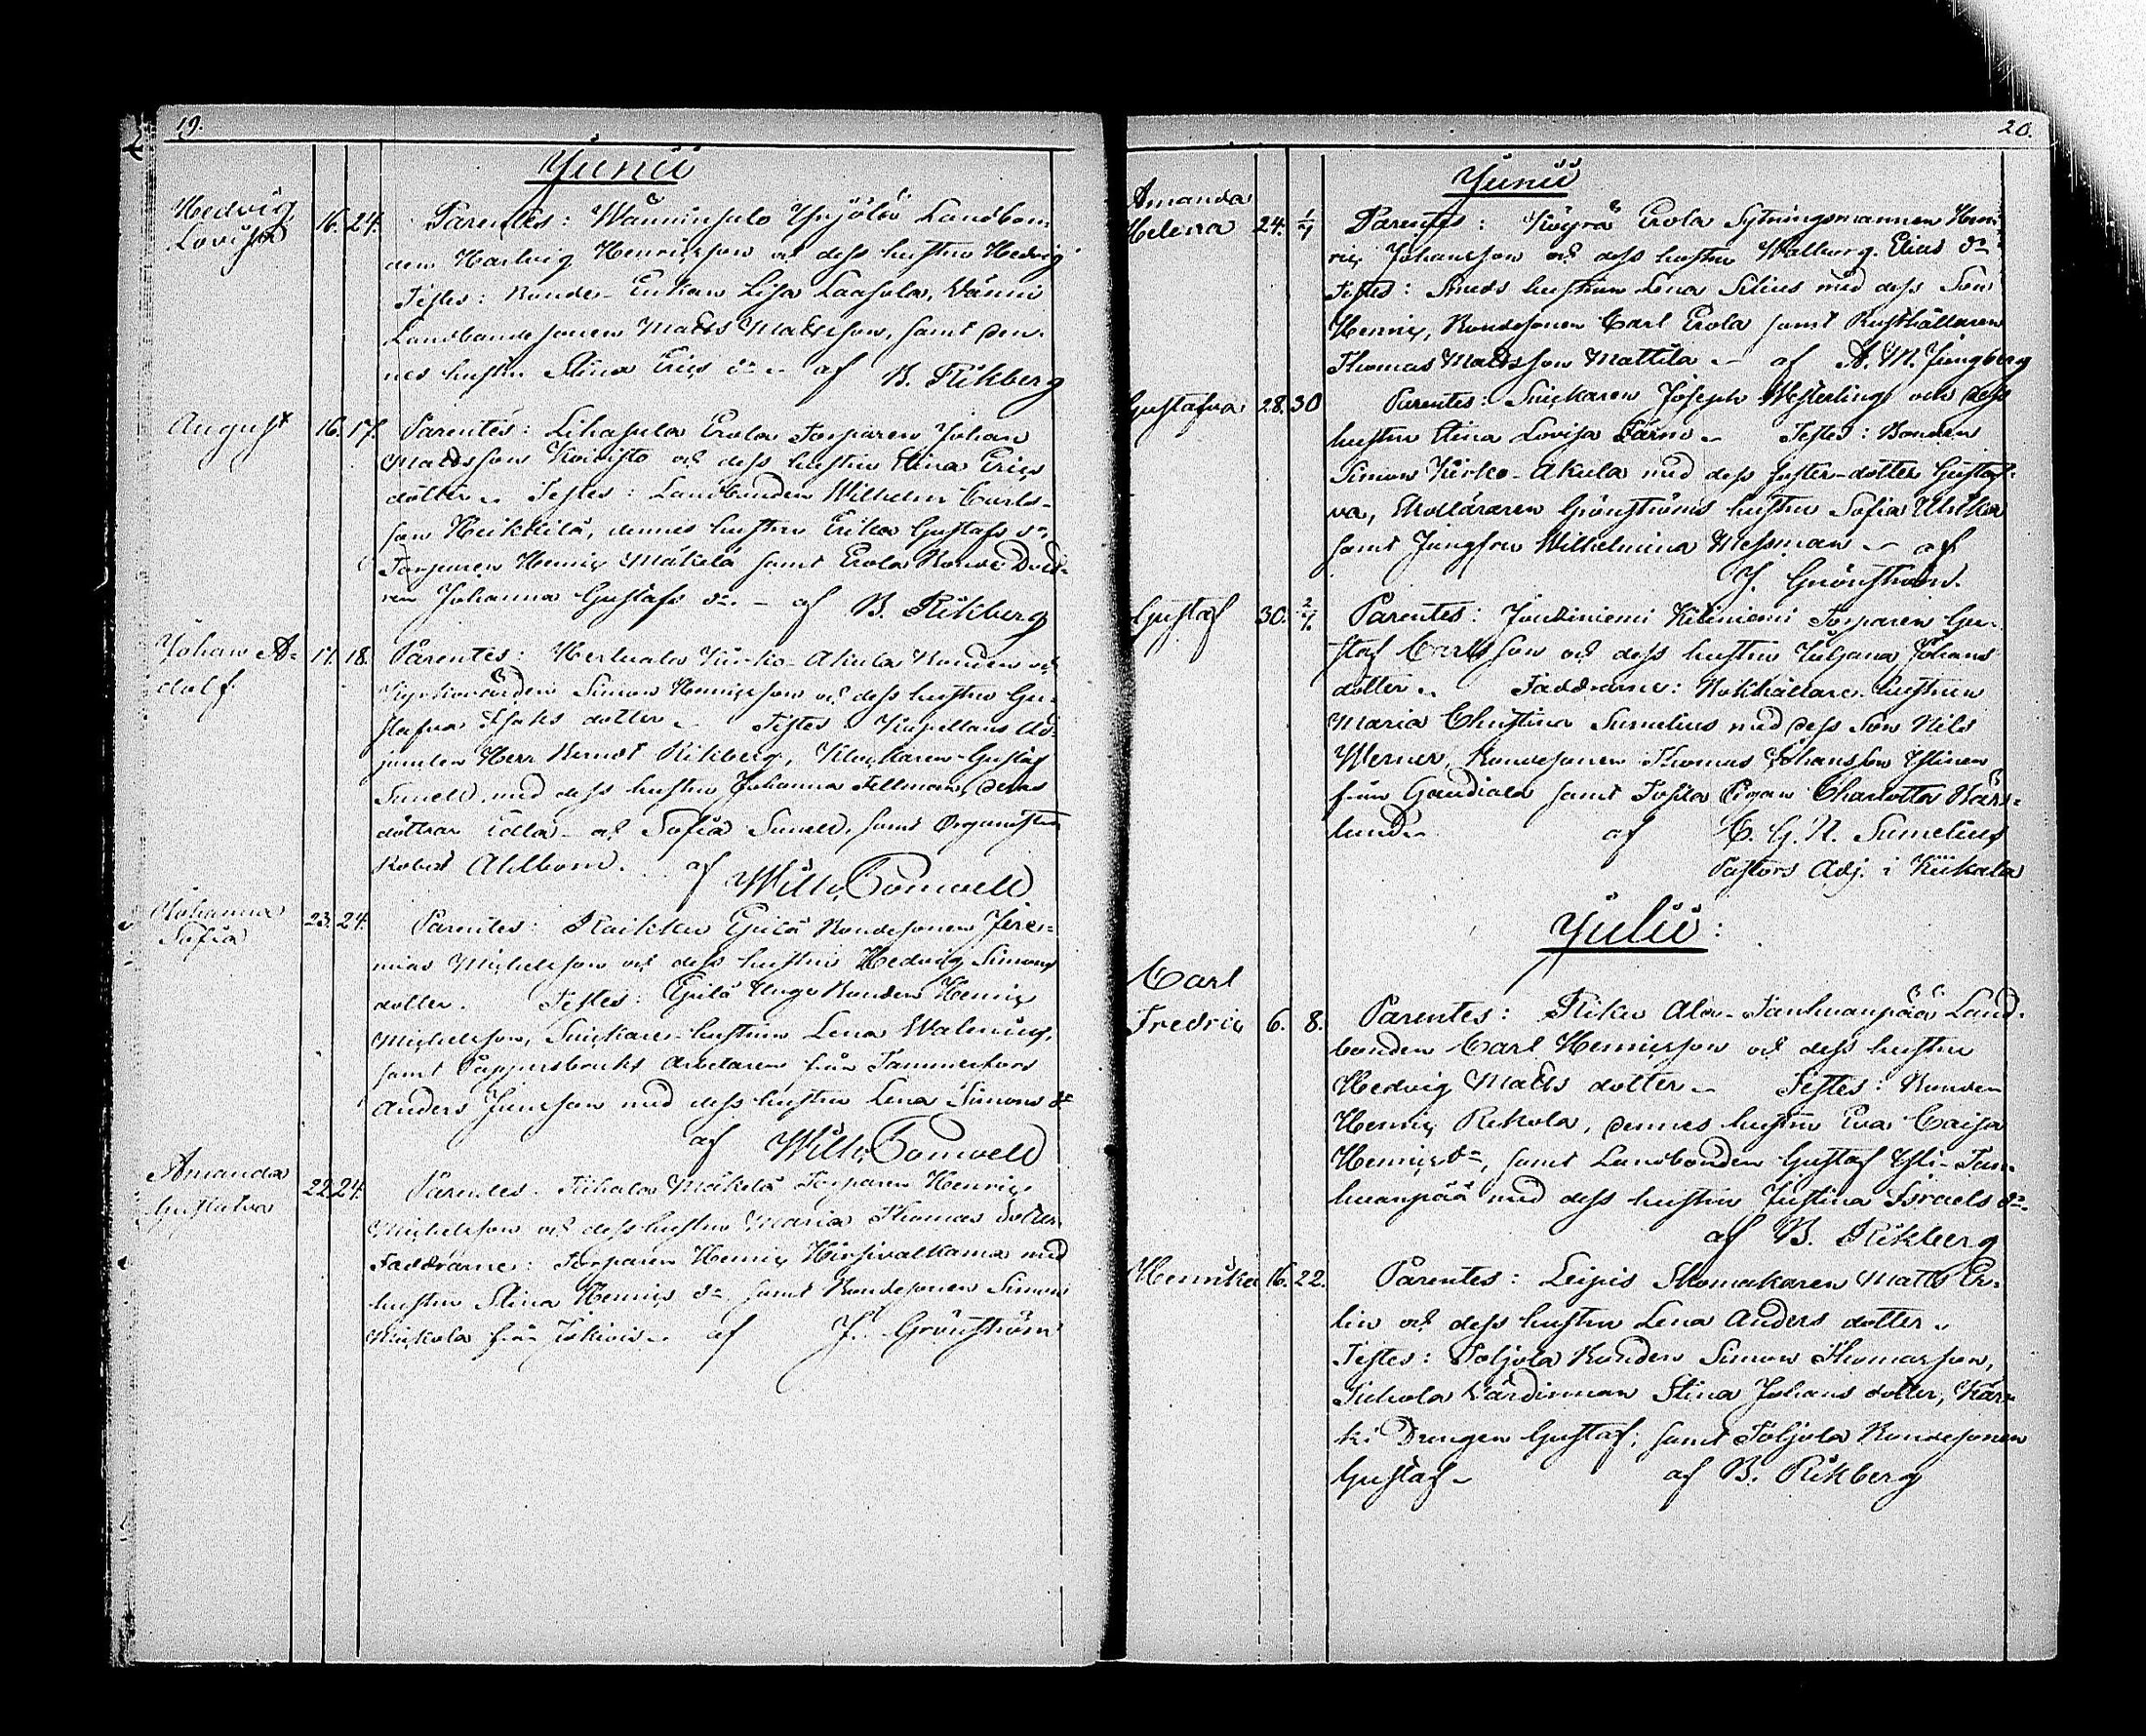 19.
Junii
Hedvig
Lovisa
16. 24. Parentes: Wänninsalo Yrjölä Landbon-
den Hartvig Henricsson och dess hustru Hedvig
Testes: Bonde-Enkan Lisa Laasola, Wänni
Landbondesonen Matts Mattsson, samt den-
nes hustru Stina Erics dr. af B. Rikberg
August 16. 17. Parentes: Lihasula Erola Torparen Johan
Mattsson Koivisto och dess hustru Stina Erics
dotter. Testes: Landbonden Wilhelm Carls-
son Heikkilä, dennes hustru Erika Gustafs dr.
Torparen Henric Mäkelä samt Erola Bonde Dott-
ren Johanna Gustafs dr. af B. Rikberg
Johan A-
dolf
17. 18. Parentes: Hertuala Kirko-Akula Bonden och
Kyrkovärden Simon Henricsson och dess hustru Gu-
stafva Isaks dotter. Testes: Kapellans Ad-
juncten Herr Berndt Rikberg, Klockaren Gustaf
Sunell med dess hustru Johanna Fellman, deras
döttrar Edla och Sofia Sunell, samt Organisten
Robert Ahlbom. af Wilh.
Johanna
Sofia
23. 24. Parentes: Raikku Epilä Bondesonen Jere-
mias Michelsson och dess hustru Hedvig Simons
dotter. Testes: Epilä Unge Bonden Henric
Michelsson, Snickare-hustrun Lena Walenius,
samt Pappersbruks Arbetaren från Tammerfors
Anders Jansson med dess hustru Lena Simons dr
af Wilh.
Amanda
Gustafva
22. 24. Parentes: Mäkelä Torparen Henric
Michelsson och dess hustru Maria Thomas dotter
Faddrarne: Torparen Henric Hirsivalkama med
hustru Stina Henrics dr. samt Bondesonen Simon
från Jokiois. af J. Grönström
20.
Junii
Amanda
Helena 24. 1/7 Parentes: Köyrä Erola Sytningsmannen Hen-
ric Johansson och dess hustru Walborg Elias dr
Testes: Smeds hustrun Lena Silius med dess Son
Henric, Bondesonen Carl Erola samt Rusthållaren
Thomas Mattsson Mattila. af A. M. Jungberg
Gustafva 28. 30 Parentes: Snickaren Joseph Westerling och dess
hustru Stina Lovisa Färm. Testes: Bonden
Simon Kirko-Akula med dess foster-dotter Gustaf-
va, Skolläraren Grönströms hustru Sofia Ulrika
samt Jungfru Wilhelmina Messman. af
J. Grönström.
Gustaf 30. 2/7. Parentes: Kiliniemi Torparen Gu-
staf Carlsson och dess hustru Juliana Johans
dotter. Faddrarne: Bokhållare-hustrun
Maria Christina Sumelius med dess Son Nils
Werner, Bondesonen Thomas Johansson Ylinen
från Gaudiala samt Tosila Pigan Charlotta Käns-
lund. af C. G. N. Sumelius
Pastors Adj. i Kiikala
Julii:
Carl
Fredric 6. 8. Parentes: Riku Ala-Tanhuanpää Land-
bonden Carl Henricsson och dess hustru
Hedvig Matts dotter. Testes: Bonden
Henric Rekola, dennes hustru Eva Caisa
Henrics dr, samt Landbonden Gustaf Yli-Tan-
huanpää med dess hustru Justina Israels dr.
af B. Rikberg
Henrika 16. 22. Parentes: Leipis Skomakaren Matts Er-
lin och dess hustru Lena Anders dotter.
Testes: Toljola Bonden Simon Thomasson,
Värdinnan Stina Johans dotter, Kär-
ki Drengen Gustaf, samt Toljola Bondesonen
Gustaf. af B. Rikberg